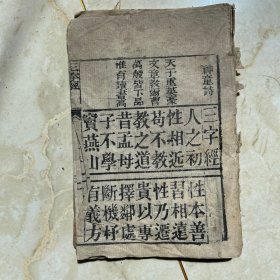 神童詩
天子重英豪
文章教爾曹
萬般皆下品
惟有讀書高
三字經
人之初 性本善
性相近 習相遠
苟不教 性乃遷
教之道 貴以專
昔孟母 擇鄰處
子不學 斷機杼
竇燕山 有義方
三字經